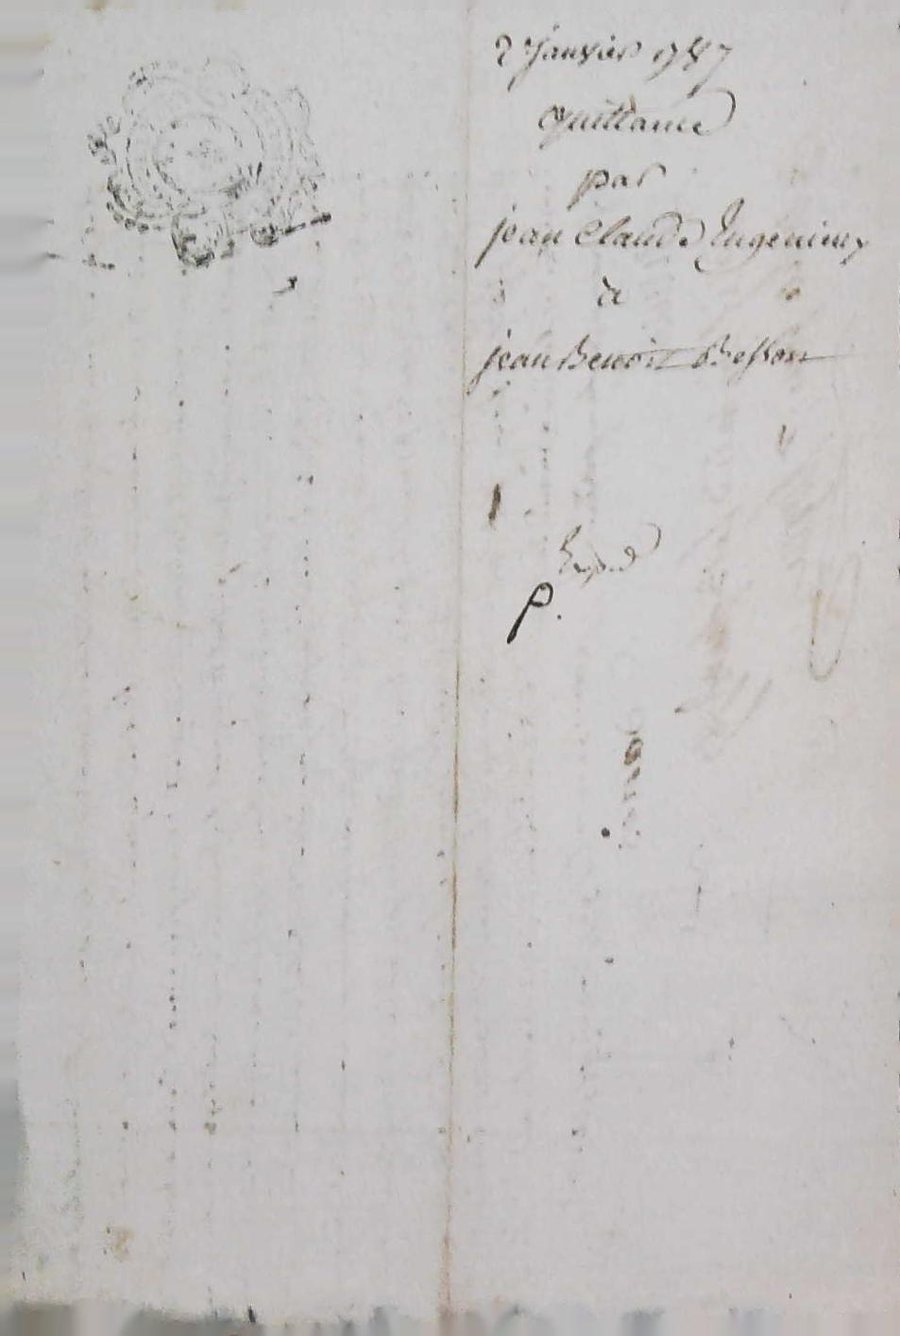 2 Janvier 1787
quittance
par
jean Claude Ingenieux
à
jean Benoit Besson
Exped
P.